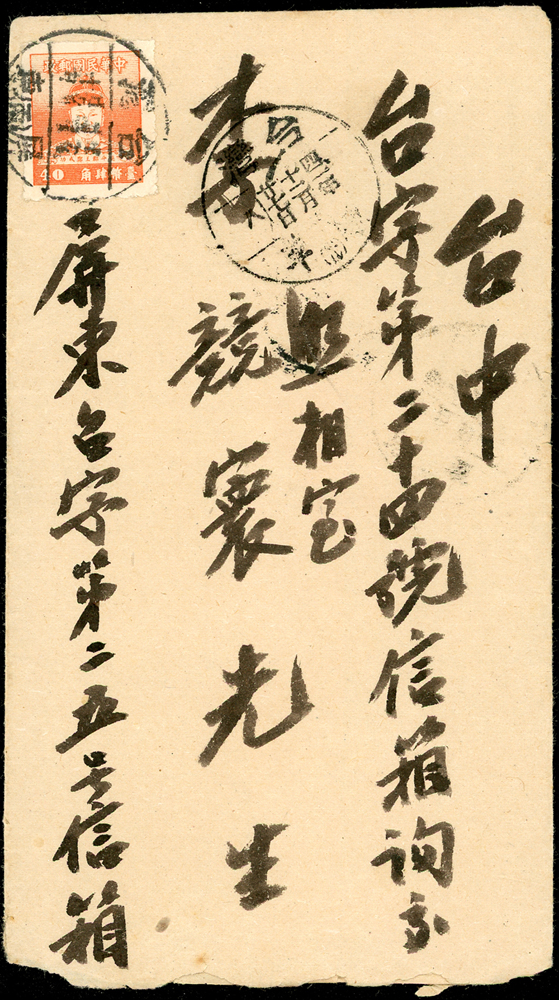 台中
台字第二十四號信箱詢交
照相室
李競寰先生
屏東台字第二五号信箱
中華民國郵政
臺幣肆角
40
台
四年
十二月
廿日